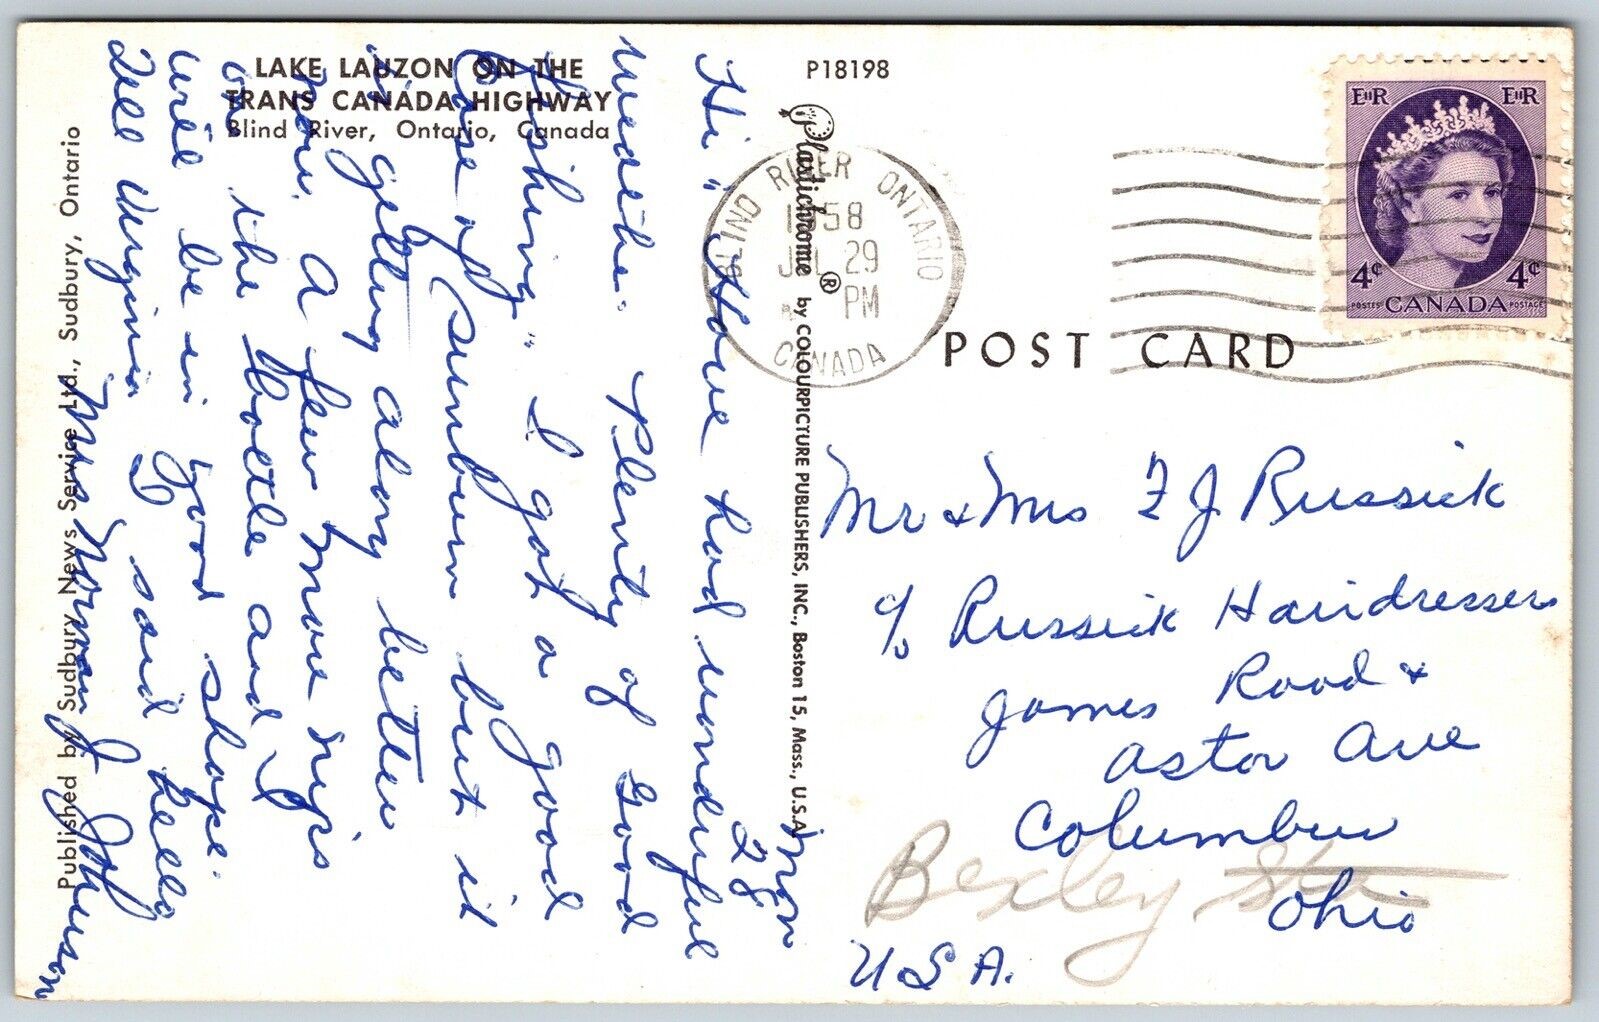 LAKE LAUZON ON THE
TRANS CANADA HIGHWAY
Blind River, Ontario, Canada
P18198
Published by Sudbury News Service Ltd., Sudbury, Ontario
Plastichrome ® by COLOURPICTURE PUBLISHERS, INC., Boston 15, Mass., U.S.A.
BLIND RIVER ONTARIO
1958
JUL 29
PM
CANADA
EIIR EIIR
4¢ 4¢
POSTES CANADA POSTAGE
POST CARD
Mon
28
Hi" Have had wonderful
weather. Plenty of Good
fishing" I got a good
Case of Sunburn but it
is getting along better
now. A few more nips
on the bottle and I
will be in good shape.
Tell Virginia I said hello
Mrs Norman J Johnson
Mr & Mrs F J Russick
c/o Russick Hairdressers
James Road &
Astor Ave
Columbus
Bexley
Ohio
U.S.A.